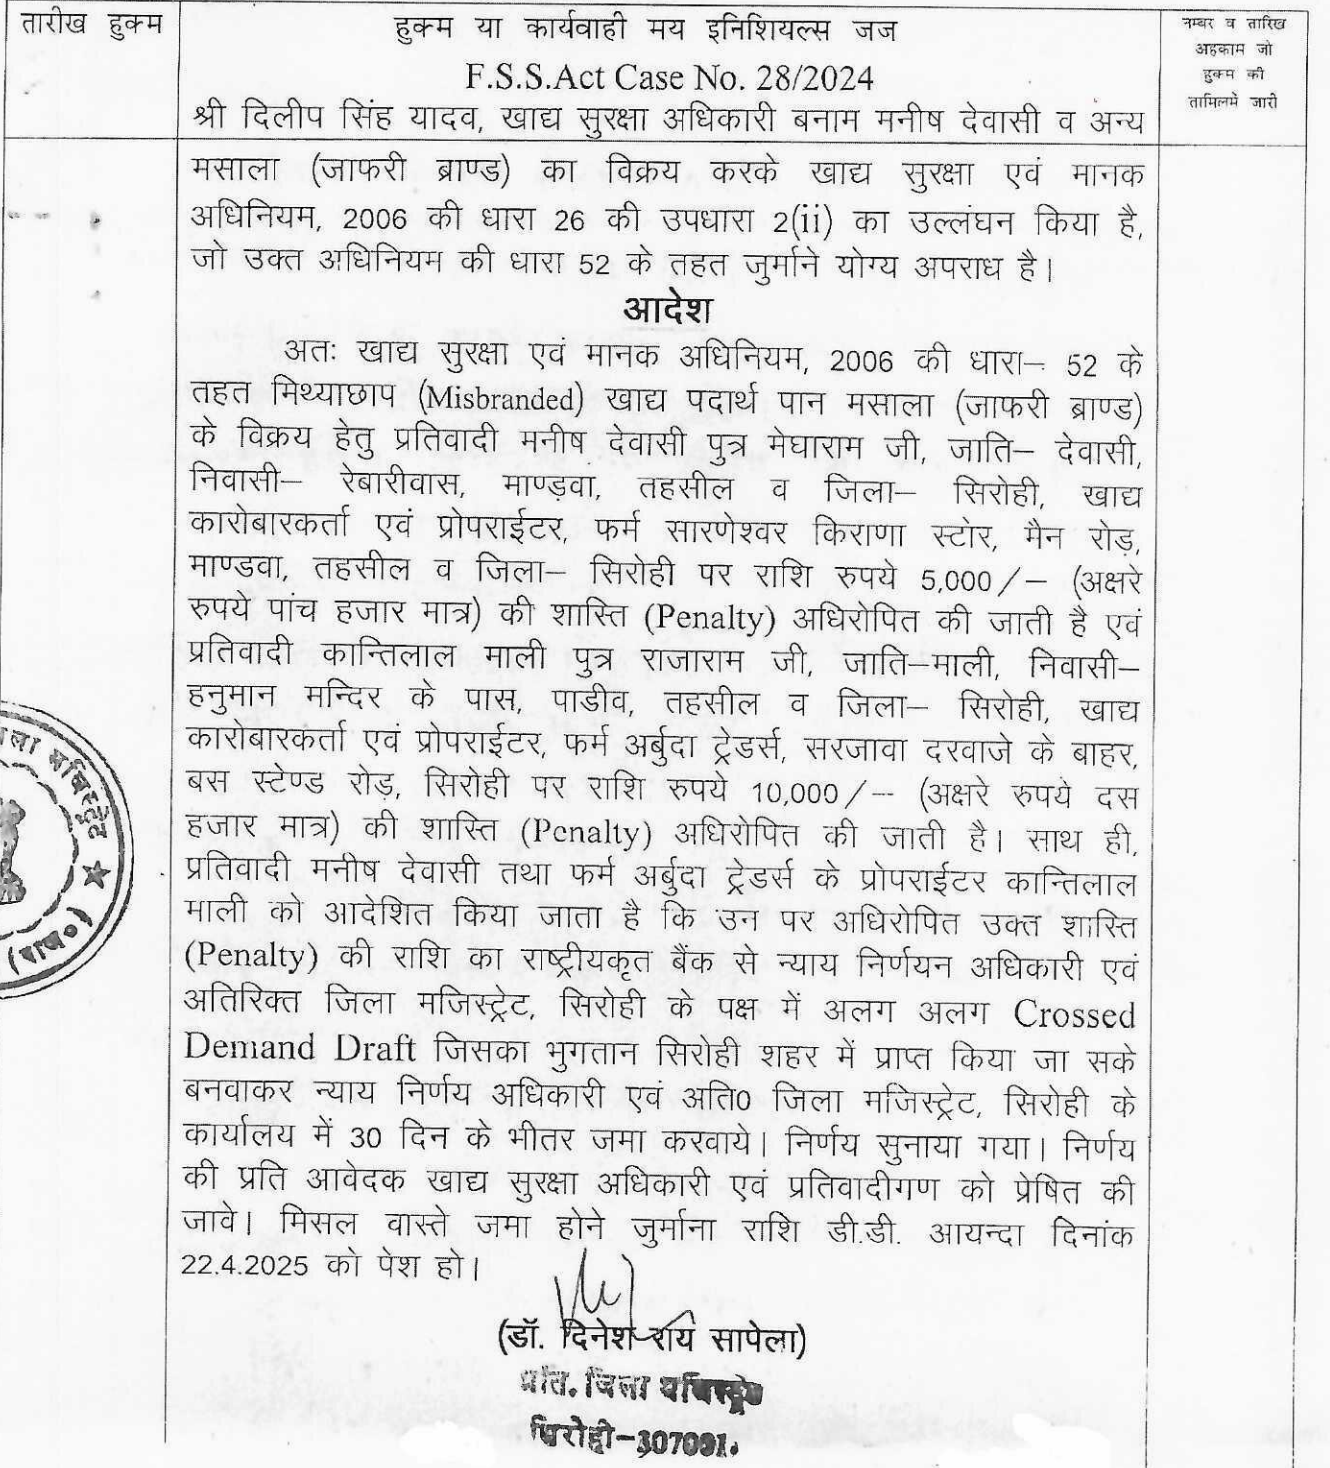 तारीख हुक्म
हुक्म या कार्यवाही मय इनिशियल्स जज
नम्बर व तारिख
अहकाम जो
हुक्म की
तामिलमे जारी
F.S.S.Act Case No. 28/2024
श्री दिलीप सिंह यादव, खाद्य सुरक्षा अधिकारी बनाम मनीष देवासी व अन्य
मसाला (जाफरी ब्राण्ड) का विक्रय करके खाद्य सुरक्षा एवं मानक
अधिनियम, 2006 की धारा 26 की उपधारा 2(ii) का उल्लंघन किया है,
जो उक्त अधिनियम की धारा 52 के तहत जुर्माने योग्य अपराध है।
आदेश
अतः खाद्य सुरक्षा एवं मानक अधिनियम, 2006 की धारा– 52 के
तहत मिथ्याछाप (Misbranded) खाद्य पदार्थ पान मसाला (जाफरी ब्राण्ड)
के विक्रय हेतु प्रतिवादी मनीष देवासी पुत्र मेघाराम जी, जाति– देवासी,
निवासी– रेबारीवास, माण्डवा, तहसील व जिला– सिरोही, खाद्य
कारोबारकर्ता एवं प्रोपराईटर, फर्म सारणेश्वर किराणा स्टोर, मैन रोड़,
माण्डवा, तहसील व जिला– सिरोही पर राशि रुपये 5,000/– (अक्षरे
रुपये पांच हजार मात्र) की शास्ति (Penalty) अधिरोपित की जाती है एवं
प्रतिवादी कान्तिलाल माली पुत्र राजाराम जी, जाति–माली, निवासी–
हनुमान मन्दिर के पास, पाडीव, तहसील व जिला– सिरोही, खाद्य
कारोबारकर्ता एवं प्रोपराईटर, फर्म अर्बुदा ट्रेडर्स, सरजावा दरवाजे के बाहर,
बस स्टेण्ड रोड़, सिरोही पर राशि रुपये 10,000/– (अक्षरे रुपये दस
हजार मात्र) की शास्ति (Penalty) अधिरोपित की जाती है। साथ ही,
प्रतिवादी मनीष देवासी तथा फर्म अर्बुदा ट्रेडर्स के प्रोपराईटर कान्तिलाल
माली को आदेशित किया जाता है कि उन पर अधिरोपित उक्त शास्ति
(Penalty) की राशि का राष्ट्रीयकृत बैंक से न्याय निर्णयन अधिकारी एवं
अतिरिक्त जिला मजिस्ट्रेट, सिरोही के पक्ष में अलग अलग Crossed
Demand Draft जिसका भुगतान सिरोही शहर में प्राप्त किया जा सके
बनवाकर न्याय निर्णय अधिकारी एवं अति0 जिला मजिस्ट्रेट, सिरोही के
कार्यालय में 30 दिन के भीतर जमा करवाये। निर्णय सुनाया गया। निर्णय
की प्रति आवेदक खाद्य सुरक्षा अधिकारी एवं प्रतिवादीगण को प्रेषित की
जावे। मिसल वास्ते जमा होने जुर्माना राशि डी.डी. आयन्दा दिनांक
22.4.2025 को पेश हो।
(डॉ. दिनेश राय सापेला)
अति. जिला मजिस्ट्रेट
सिरोही-307001.
मजिस्ट्रेट ★ (राज०)